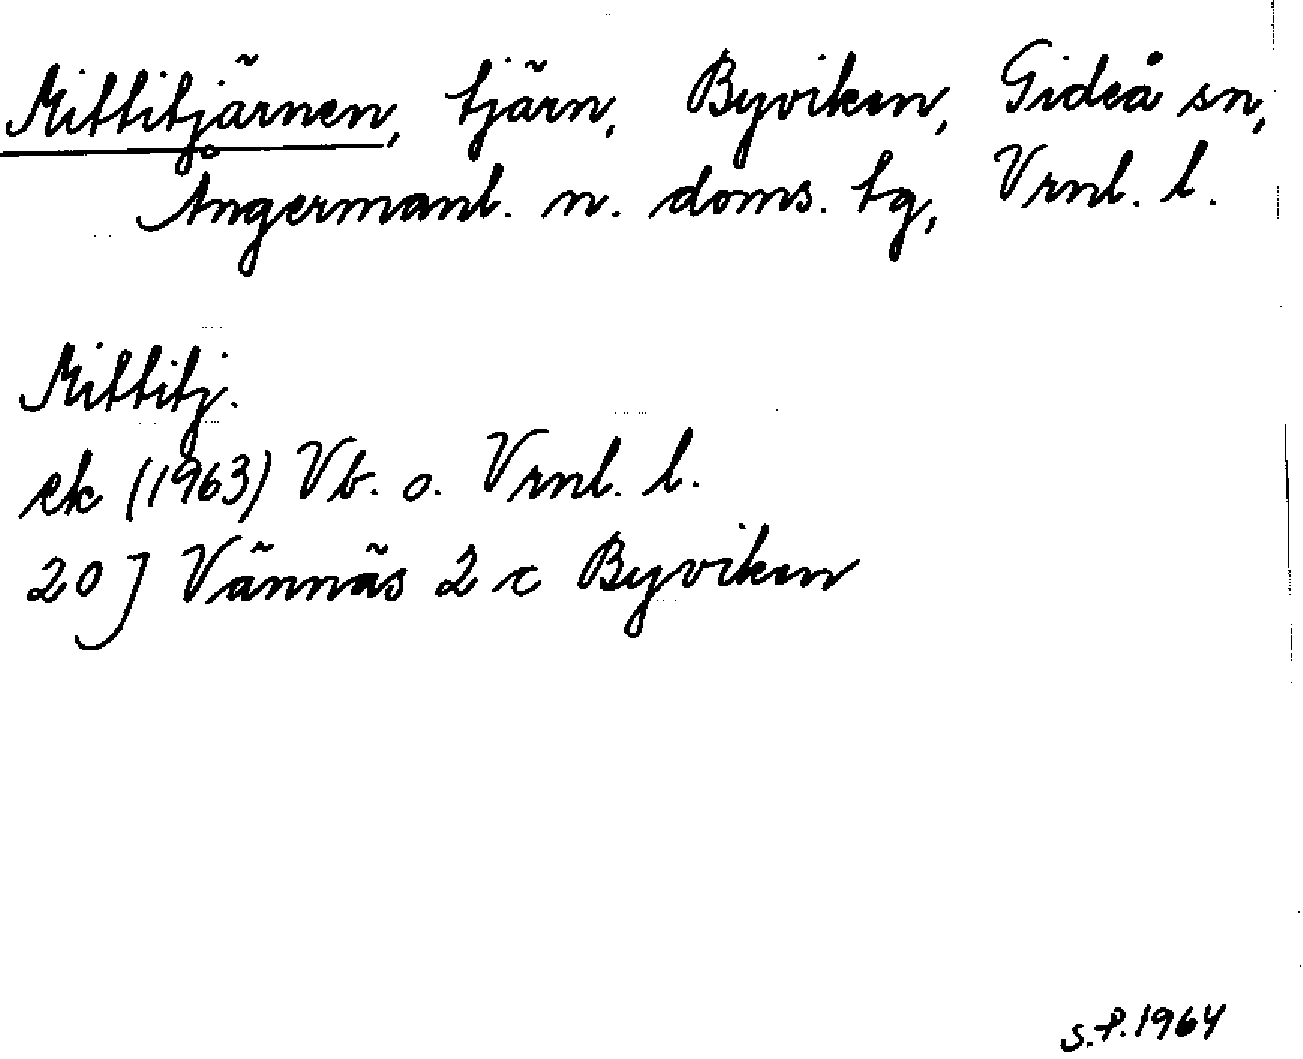 Mittitjärnen, tjärn, Byviken, Gideå sn,
Ångermanl. n. doms. tg, Vrnl. l.
Mittitj.
ek (1963) Vb. o. Vrnl. l.
20 J Vännäs 2 c Byviken
S.P. 1964